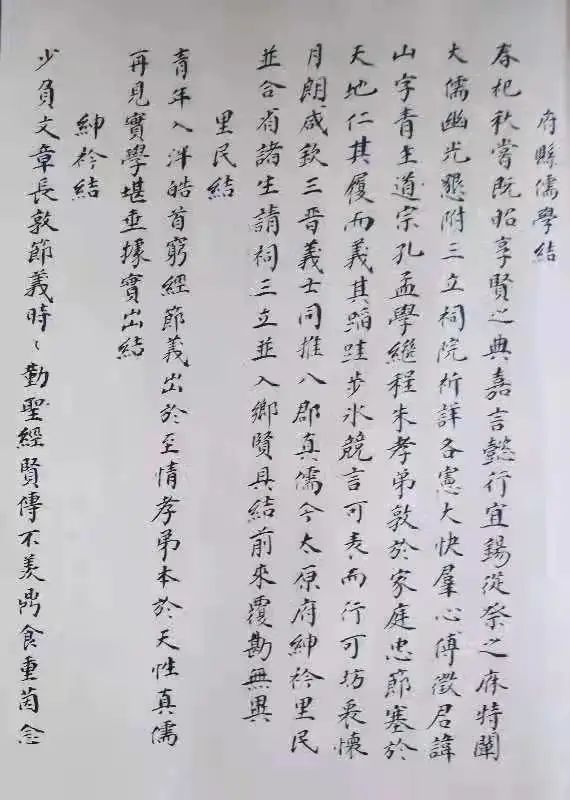 府縣儒學結
春祀秋嘗既昭享賢之典嘉言懿行宜錫從祭之庥特闡
大儒幽光懇附三立祠院祈詳各憲大快羣心傅徵君諱
山字青主道宗孔孟學繼程朱孝弟敦於家庭忠節塞於
天地仁其履而義其蹈跬步氷兢言可表而行可坊喪懷
月朗咸欽三晉義士同推八郡真儒今太原府紳衿里民
並合省諸生請祠三立並入鄉賢具結前來覆勘無異
里民結
青年入泮皓首窮經節義出於至情孝弟本於天性真儒
再見實學堪垂據實出結
紳衿結
少負文章長敦節義時〻勤聖經賢傳不羨鼎食重茵念